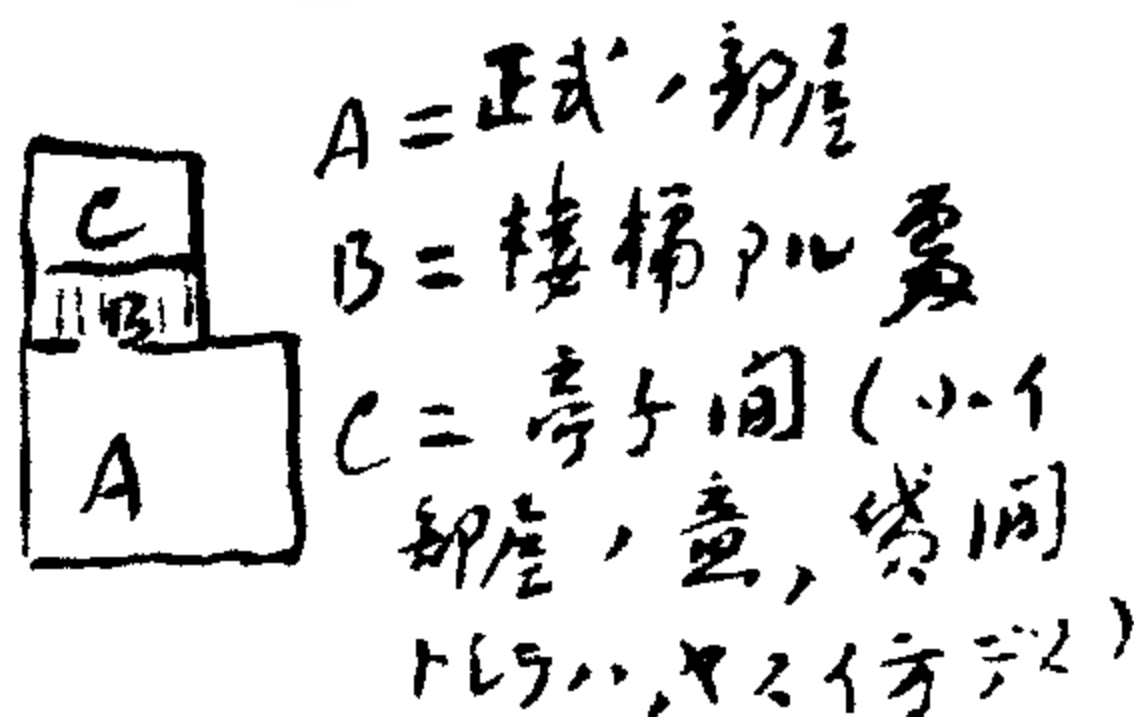 C
B
A
A=正式ノ部屋
B=樓梯アル處
C=亭子間(小イ
部屋ノ意、貸間
トシテハ、ヤスイ方デス)